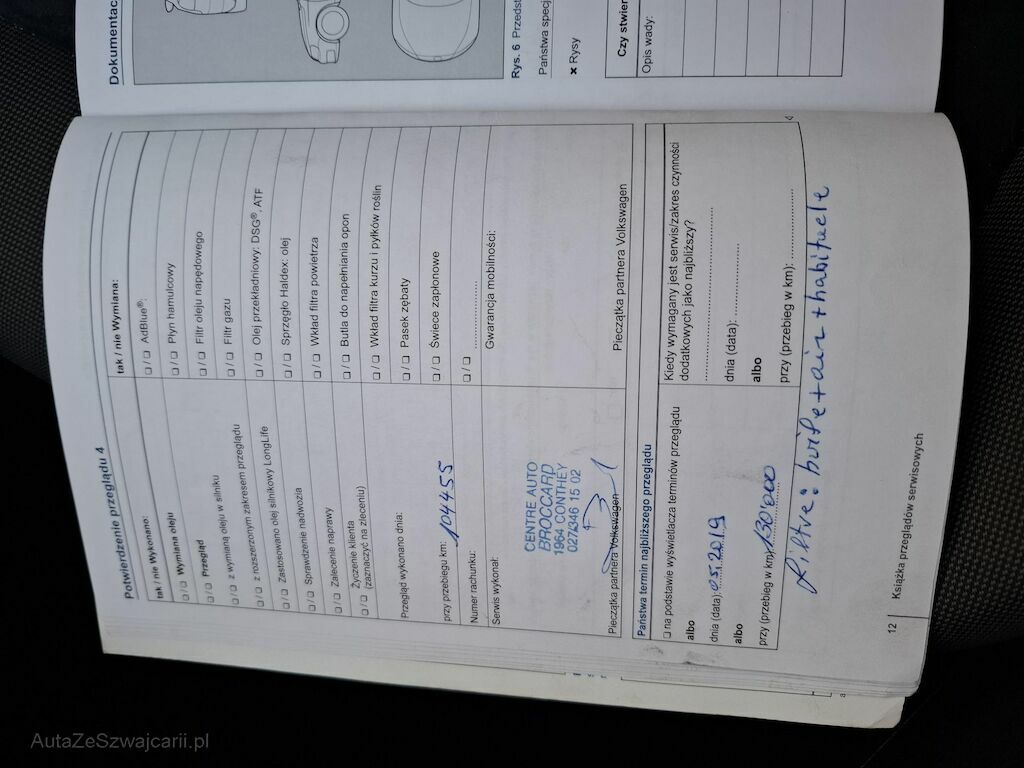 Dokumentac
Rys. 6 Przedst
Państwa specj
× Rysy
Czy stwier
Opis wady:
Potwierdzenie przeglądu 4
tak / nie Wykonano:
☐ / ☐ Wymiana oleju
☐ / ☐ Przegląd
☐ / ☐ z wymianą oleju w silniku
☐ / ☐ z rozszerzonym zakresem przeglądu
☐ / ☐ Zastosowano olej silnikowy LongLife
☐ / ☐ Sprawdzenie nadwozia
☐ / ☐ Zalecenie naprawy
☐ / ☐ Życzenie klienta
(zaznaczyć na zleceniu)
Przegląd wykonano dnia:
przy przebiegu km: 104455
Numer rachunku:
Serwis wykonał:
CENTRE AUTO
BROCCARD
1964 CONTHEY
027/346 15 02
Pieczątka partnera Volkswagen
tak / nie Wymiana:
☐ / ☐ AdBlue®:
☐ / ☐ Płyn hamulcowy
☐ / ☐ Filtr oleju napędowego
☐ / ☐ Filtr gazu
☐ / ☐ Olej przekładniowy: DSG®, ATF
☐ / ☐ Sprzęgło Haldex: olej
☐ / ☐ Wkład filtra powietrza
☐ / ☐ Butla do napełniania opon
☐ / ☐ Wkład filtra kurzu i pyłków roślin
☐ / ☐ Pasek zębaty
☐ / ☐ Świece zapłonowe
☐ / ☐ ....................
Gwarancja mobilności:
Pieczątka partnera Volkswagen
Państwa termin najbliższego przeglądu
☐ na podstawie wyświetlacza terminów przeglądu
albo
dnia (data): 05.2019
albo
przy (przebieg w km): 130'000
Kiedy wymagany jest serwis/zakres czynności
dodatkowych jako najbliższy?
dnia (data): ....................
albo
przy (przebieg w km): ....................
filtre: huile + air + habitacle
12
Książka przeglądów serwisowych
AutaZeSzwajcarii.pl